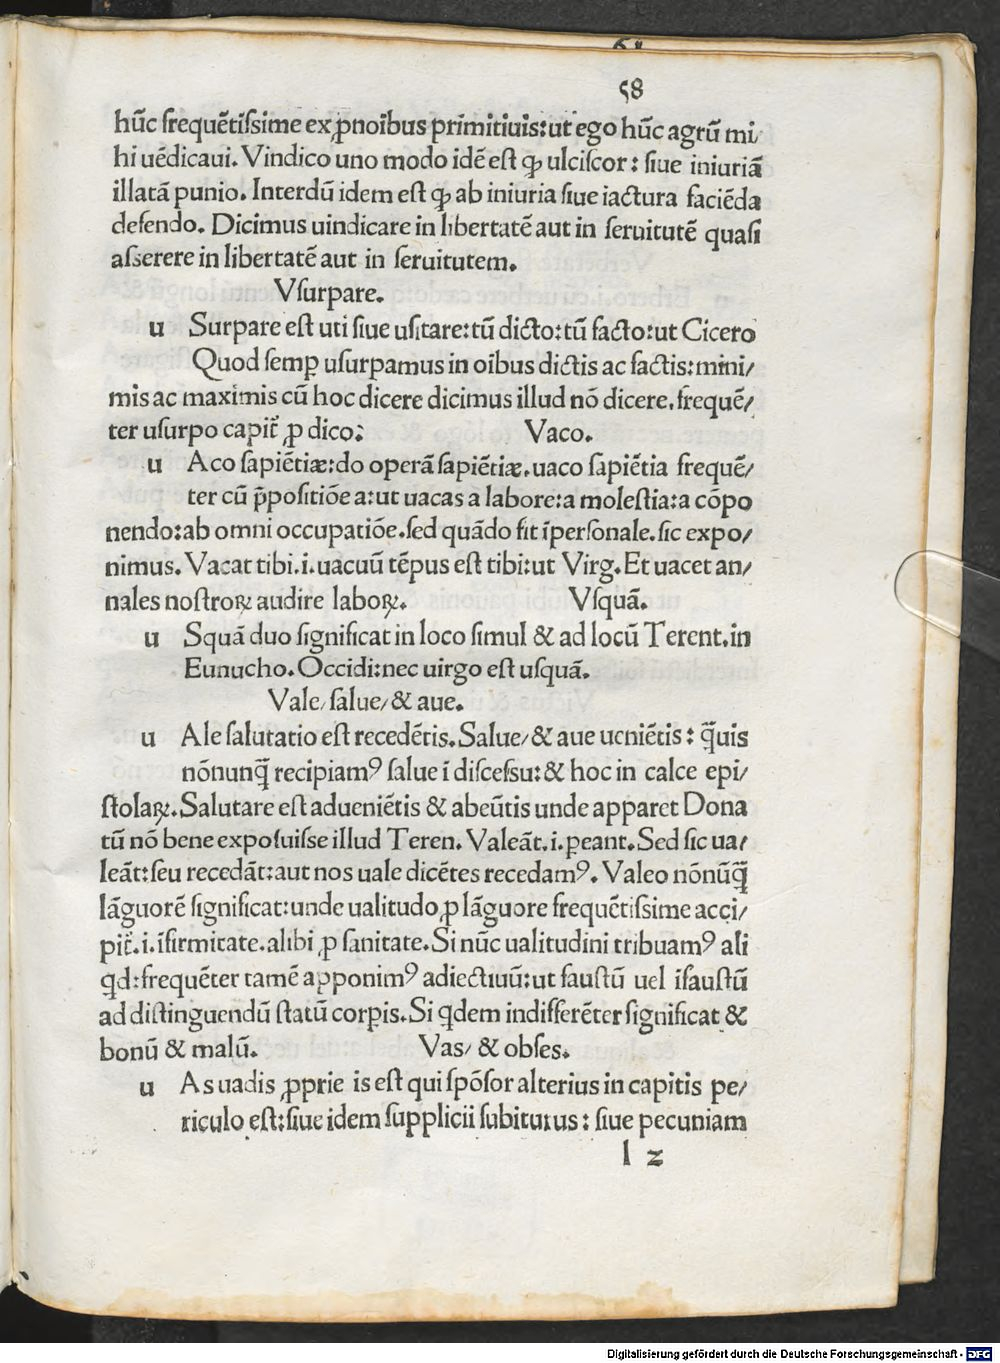 58
hūc frequētissime ex ꝓnoibus primitiuis: ut ego hūc agrū mi
hi uēdicaui. Vindico uno modo idē est ꝙ ulciscor: siue iniuriā
illatā punio. Interdū idem est ꝙ ab iniuria siue iactura faciēda
defendo. Dicimus uindicare in libertatē aut in seruitutē quasi
asserere in libertatē aut in seruitutem.
Vsurpare.
u Surpare est uti siue usitare: tū dicto: tū facto: ut Cicero
Quod semꝑ usurpamus in oibus dictis ac factis: mini/
mis ac maximis cū hoc dicere dicimus illud nō dicere. frequē/
ter usurpo capit̄ ꝓ dico: Vaco.
u Aco sapiētiæ: do operā sapiētiæ. uaco sapiētia frequē/
ter cū p̄positiōe a: ut uacas a labore: a molestia: a cōpo
nendo: ab omni occupatiōe. sed quādo fit īpersonale. sic expo/
nimus. Vacat tibi. i. uacuū tēpus est tibi: ut Virg. Et uacet an/
nales nostroꝝ audire laboꝝ. Vsquā.
u Squā duo significat in loco simul & ad locū Terent. in
Eunucho. Occidi: nec uirgo est usquā.
Vale/ salue/ & aue.
u Ale salutatio est recedētis. Salue/ & aue ueniētis: q̄uis
nōnunq̄ recipiamꝰ salue ī discessu: & hoc in calce epi/
stolaꝝ. Salutare est adueniētis & abeūtis unde apparet Dona
tū nō bene exposuisse illud Teren. Valeāt. i. ꝑeant. Sed sic ua/
leāt: seu recedāt: aut nos uale dicētes recedamꝰ. Valeo nōnūq̄
lāguorē significat: unde ualitudo ꝓ lāguore frequētissime acci/
pit̄. i. īfirmitate. alibi ꝓ sanitate. Si nūc ualitudini tribuamꝰ ali
qd: frequēter tamē apponimꝰ adiectiuū: ut faustū uel īfaustū
ad distinguendū statū corꝑis. Si qdem indifferēter significat &
bonū & malū. Vas/ & obses.
u As uadis ꝓprie is est qui spōsor alterius in capitis pe/
riculo est: siue idem supplicii subiturus: siue pecuniam
l 2
Digitalisierung gefördert durch die Deutsche Forschungsgemeinschaft - DFG